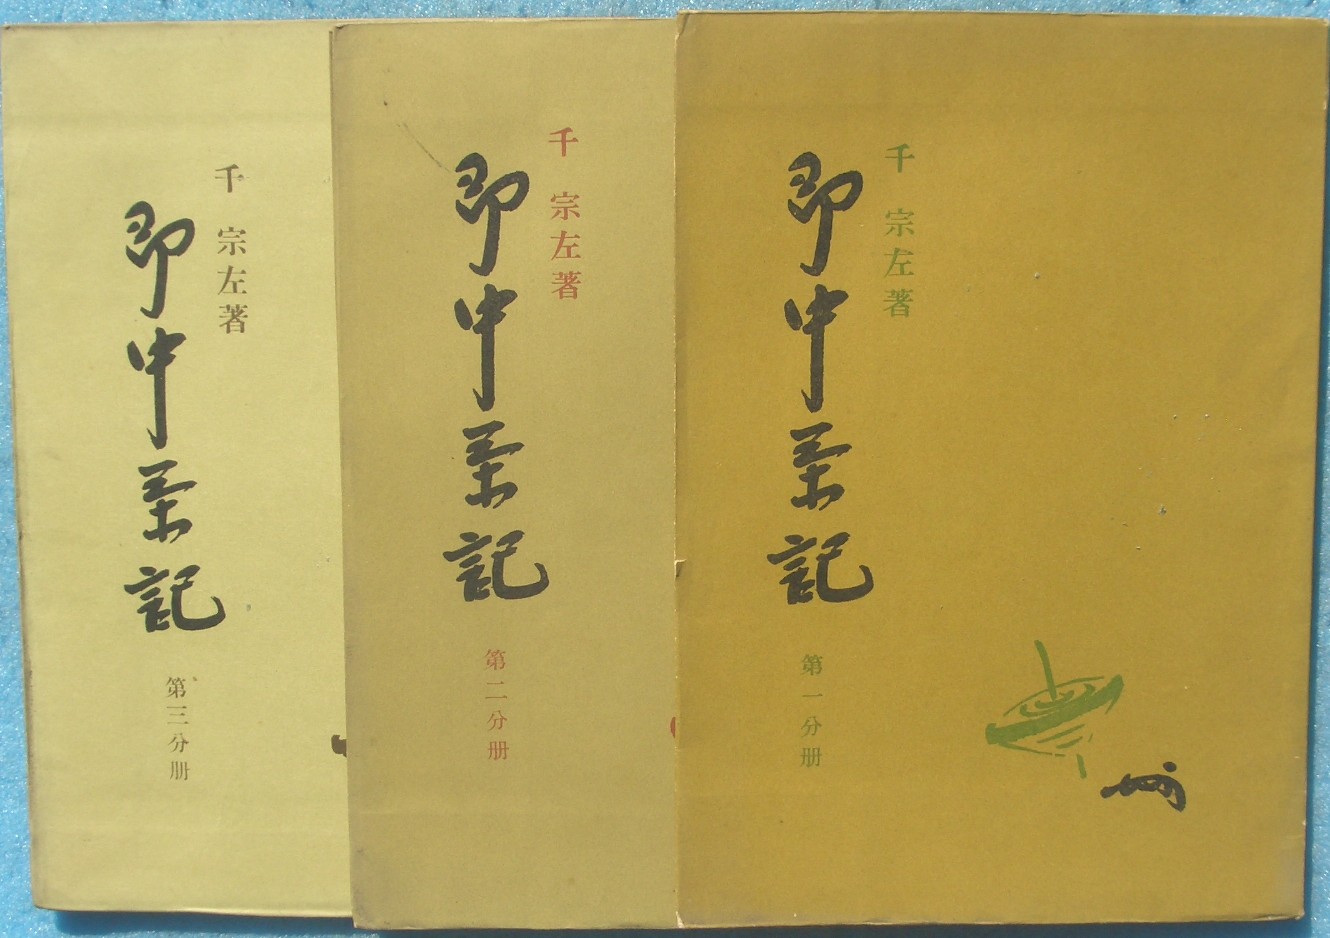 千 宗左著
即中茶記
第一分册
千 宗左著
即中茶記
第二分册
千 宗左著
即中茶記
第三分册